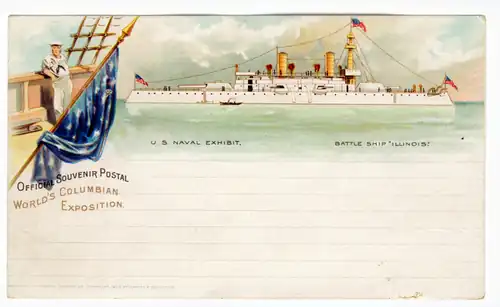 U.S. NAVAL EXHIBIT. BATTLE SHIP "ILLINOIS".
OFFICIAL SOUVENIR POSTAL
WORLD'S COLUMBIAN
EXPOSITION.